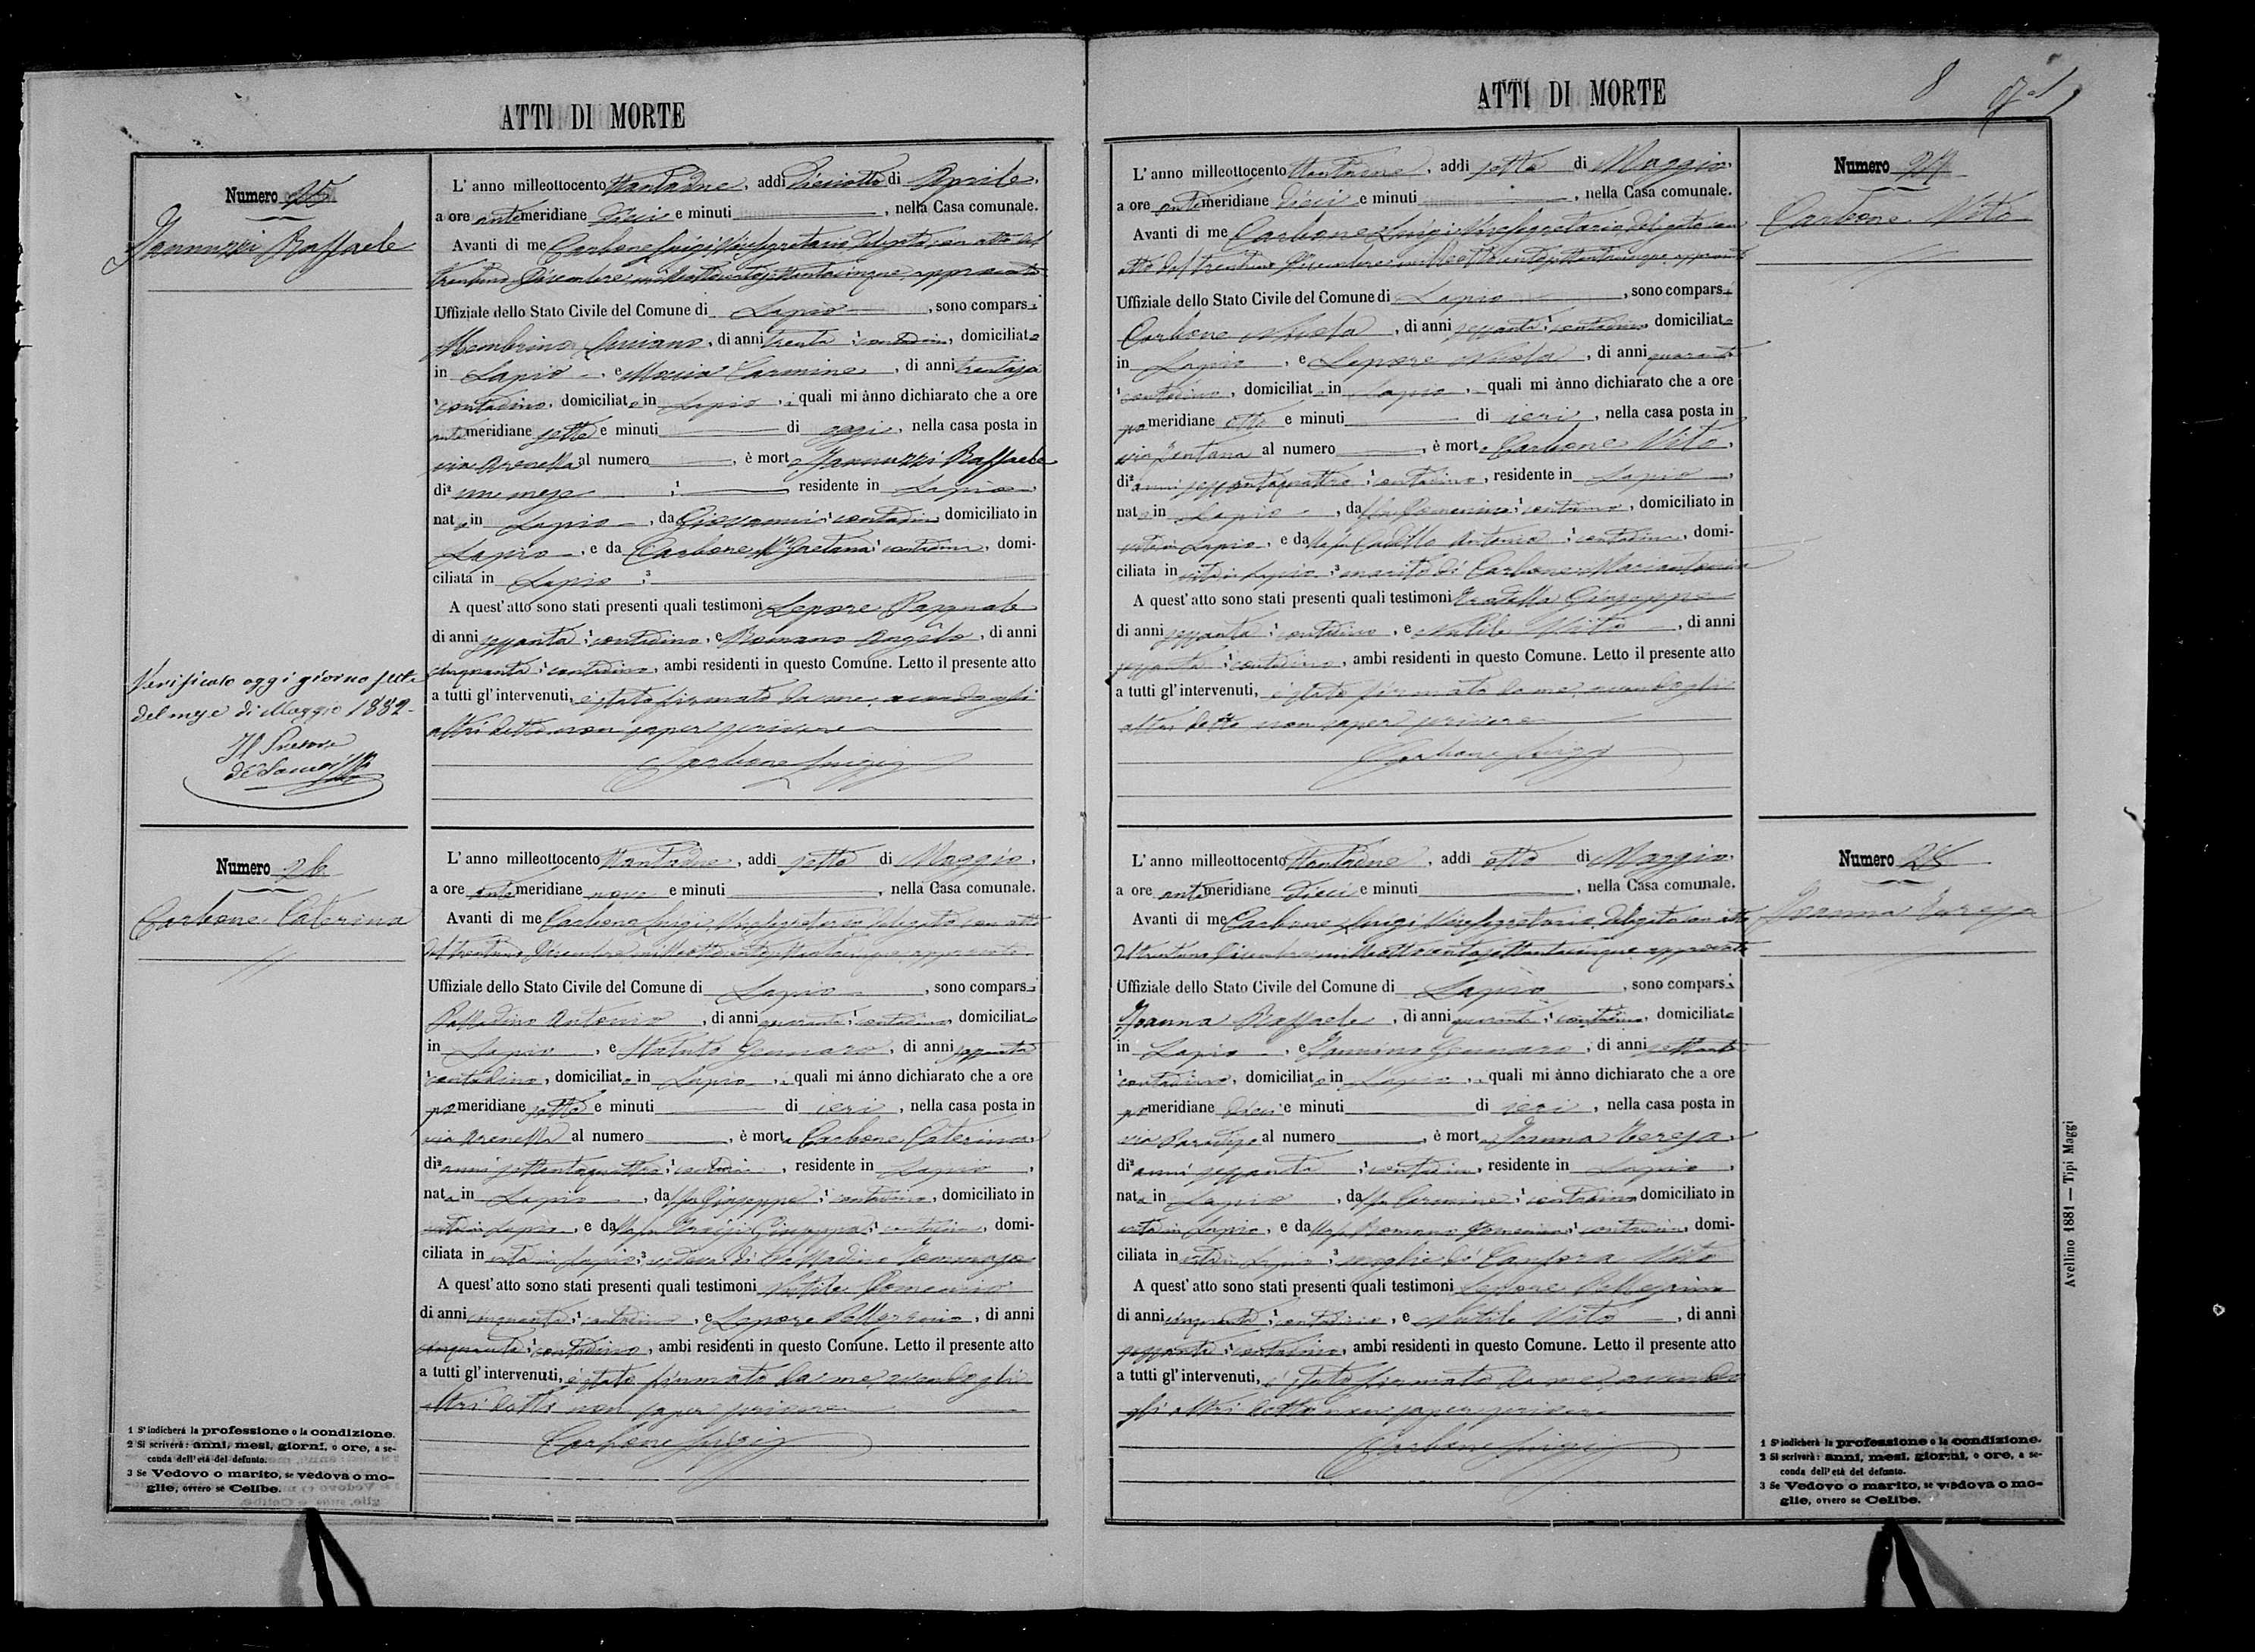 ATTI DI MORTE
Numero 25
Iannuzzi Raffaele
L' anno milleottocento ottantadue, addì dieciotto di Aprile,
a ore antimeridiane dieci e minuti, nella Casa comunale.
Avanti di me Carbone Luigi Vicesegretario delegato con atto del
trentuno Dicembre milleottocentosettantacinque approvato
Uffiziale dello Stato Civile del Comune di Lapio, sono comparsi
Membrino Luciano, di anni trenta 1 contadino, domiciliato
in Lapio, e Moccia Carmine, di anni trentasei
1 contadino, domiciliato in Lapio, i quali mi ànno dichiarato che a ore
antimeridiane sette e minuti di oggi, nella casa posta in
via Arenella al numero, è morto Iannuzzi Raffaele
di 2 un mese 1, residente in Lapio
nato in Lapio, da Giovanni 1 contadino domiciliato in
Lapio, e da Carbone Ma Gaetana 1 contadina, domi-
ciliata in Lapio 3
A quest' atto sono stati presenti quali testimoni Lepore Pasquale
di anni sessanta 1 contadino, e Romano Angelo, di anni
cinquanta 1 contadino, ambi residenti in questo Comune. Letto il presente atto
a tutti gl' intervenuti, è stato firmato da me, avendo gli
altri detto non saper scrivere
Carbone Luigi
Verificato oggi giorno sette
del mese di Maggio 1882
Il Pretore
Numero 26
Carbone Caterina
L' anno milleottocento ottantadue, addì sette di Maggio,
a ore antimeridiane nove e minuti, nella Casa comunale.
Avanti di me Carbone Luigi Vicesegretario delegato con atto
del trentuno Dicembre milleottocentosettantacinque approvato
Uffiziale dello Stato Civile del Comune di Lapio, sono comparsi
Palladino Antonio, di anni quaranta 1 contadino, domiciliato
in Lapio, e Statuto Gennaro, di anni sessanta
1 contadino, domiciliato in Lapio, i quali mi ànno dichiarato che a ore
pomeridiane sette e minuti di ieri, nella casa posta in
via Arenella al numero, è morta Carbone Caterina,
di 2 anni settantaquattro 1 contadina, residente in Lapio,
nata in Lapio, da fu Giuseppe 1 contadino, domiciliato in
vita in Lapio, e da fu Giuseppa 1 contadina, domi-
ciliata in vita in Lapio 3 vedova di Palladino Tommaso
A quest' atto sono stati presenti quali testimoni Natile Domenico
di anni cinquanta 1 contadino, e Lepore Pellegrino, di anni
cinquanta 1 contadino, ambi residenti in questo Comune. Letto il presente atto
a tutti gl' intervenuti, è stato firmato da me avendo gli
altri detto non saper scrivere
Carbone Luigi
1 S' indicherà la professione o la condizione.
2 Si scriverà: anni, mesi, giorni, o ore, a se-
conda dell' età del defunto.
3 Se Vedovo o marito, se vedova o mo-
glie, ovvero se Celibe.
ATTI DI MORTE
8
Numero 27
Carbone Vito
L' anno milleottocento ottantadue, addì sette di Maggio,
a ore antimeridiane dieci e minuti, nella Casa comunale.
Avanti di me Carbone Luigi Vicesegretario delegato con
atto del trentuno Dicembre milleottocentosettantacinque approvato
Uffiziale dello Stato Civile del Comune di Lapio, sono comparsi
Carbone Nicola, di anni sessanta 1 contadino, domiciliato
in Lapio, e Lepore Nicola, di anni quaranta
1 contadino, domiciliato in Lapio, quali mi ànno dichiarato che a ore
pomeridiane otto e minuti di ieri, nella casa posta in
via Fontana al numero, è morto Carbone Vito,
di 2 anni sessantaquattro 1 contadino, residente in Lapio,
nato in Lapio, da fu Domenico 1 contadino, domiciliato in
vita in Lapio, e da Antonia 1 contadina, domi-
ciliata in vita in Lapio 3 marito di Carbone Mariantonia
A quest' atto sono stati presenti quali testimoni Giuseppe
di anni sessanta 1 contadino, e Natile Vito, di anni
sessanta 1 contadino, ambi residenti in questo Comune. Letto il presente atto
a tutti gl' intervenuti, è stato firmato da me, avendo gli
altri detto non saper scrivere
Carbone Luigi
Numero 28
Ioanna Teresa
L' anno milleottocento ottantadue, addì otto di Maggio,
a ore antimeridiane dieci e minuti, nella Casa comunale.
Avanti di me Carbone Luigi Vicesegretario delegato con atto
del trentuno Dicembre milleottocentosettantacinque approvato
Uffiziale dello Stato Civile del Comune di Lapio, sono comparsi
Ioanna Raffaele, di anni quaranta 1 contadino, domiciliato
in Lapio, e Iannino Gennaro, di anni settanta
1 contadino, domiciliato in Lapio, quali mi ànno dichiarato che a ore
pomeridiane dieci e minuti di ieri, nella casa posta in
via Paradiso al numero, è morta Ioanna Teresa,
di 2 anni sessanta 1 contadina, residente in Lapio,
nata in Lapio, da fu Carmine 1 contadino domiciliato in
vita in Lapio, e da fu Romano Domenica 1 contadina, domi-
ciliata in vita in Lapio 3 moglie di Canfora Vito
A quest' atto sono stati presenti quali testimoni Lepore Pellegrino
di anni cinquanta 1 contadino, e Natile Vito, di anni
sessanta 1 contadino, ambi residenti in questo Comune. Letto il presente atto
a tutti gl' intervenuti, è stato firmato da me, avendo
gli altri detto non saper scrivere
Carbone Luigi
1 S' indicherà la professione o la condizione.
2 Si scriverà: anni, mesi, giorni, o ore, a se-
conda dell' età del defunto.
3 Se Vedovo o marito, se vedova o mo-
glie, ovvero se Celibe.
Avellino 1881 — Tipi Maggi